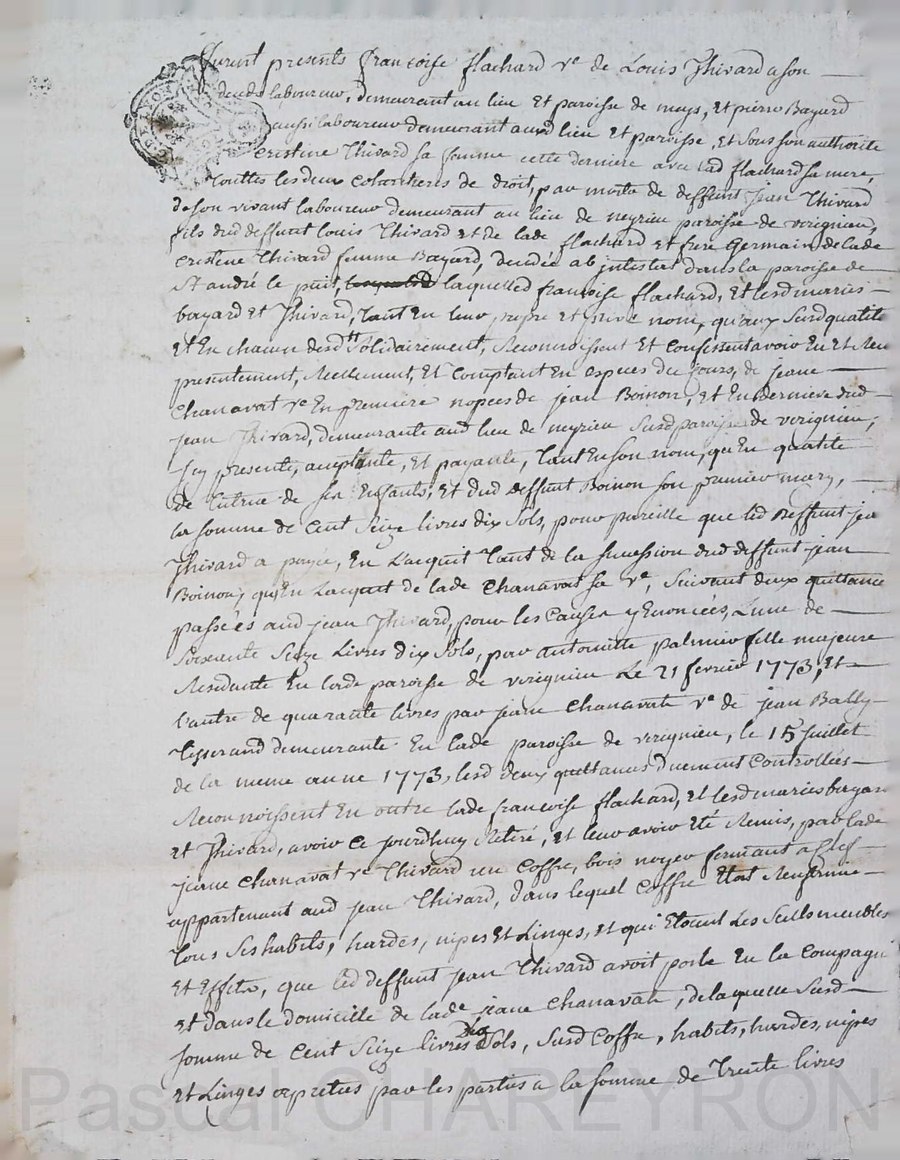 furent presents francoise flachard ve de Louis Thivard a son
decede laboureur, demeurant au lieu et paroisse de mays, et pierre Bayard
aussi laboureur demeurant aud lieu et paroisse, et sous son authorité
cristine Thivard sa femme cette derniere avec lad flachard sa mere,
touttes les deux cohéritieres de droit, par morte de deffunt jean Thivard
de son vivant laboureur demeurant au lieu de neyrieu paroisse de verignieu,
fils dud deffunt louis Thivard et de lade flachard et frere Germain de lade
cristine Thivard femme Bayard, decedée ab intestat dans la paroisse de
St andré le puit, laquelled françoise flachard, et lesd mariés
bayard et Thivard, tant en leur propre et privé nom, qu'aux susd qualité
et en chacun desdtt solidairement, Reconnoissent et confessent avoir eu et Reçu
presentement, Réellement, et comptant en especes du jours, de jeane
Chanavat ve en premiere nopces de jean Boinon, et en derniere dud
jean Thivard, demeurante aud lieu de neyrieu susd paroisse de verignieu,
Icy presente, acceptante, et payante, tant en son nom, qu'en qualité
de Tutrice de ses Enfants, et dud deffunt Boinon son premier mary,
la somme de cent seize livres dix sols, pour pareille que led deffunt jean
Thivard a payée, en L'acquit tant de la succession dud deffunt jean
Boinon, qu'en Lacquit de lade Chanavat sa ve, suivant deux quittance
passées aud jean Thivard, pour les causes y Enoncées, L'une de
soixante seize Livres dix sols, par antoinette palmier fille majeure
Residente en lade paroisse de verignieu Le 21 fevrier 1773, et
l'autre de quarante livres par jeane Chanavat ve de jean Bally
tisserand demeurante en lade paroisse de verignieu, le 15 juillet
de la meme anne 1773, lesd deux quittances duement controllées
Reconnoissent en outre lade françoise flachard, et lesd mariés bayard
et Thivard, avoir ce jourdhuy Retiré, et leur avoir été Remis, par lade
jeane Chanavat ve Thivard un coffre, bois noyer fermant a clef
appartenant aud jean Thivard, dans lequel coffre étoit Renfermé
tous ses habits, hardes, nipes et Linges, et qui étoient Les seuls meubles
et Effets, que led deffunt jean Thivard avoit porté en la compagni
et dans le domicille de lade jeane Chanavat, de laquelle susd
somme de cent seize livres dix sols, susd coffre, habits, hardes, nipes
et Linges apretiés par les parties a la somme de Trente livres
Pascal CHAREYRON